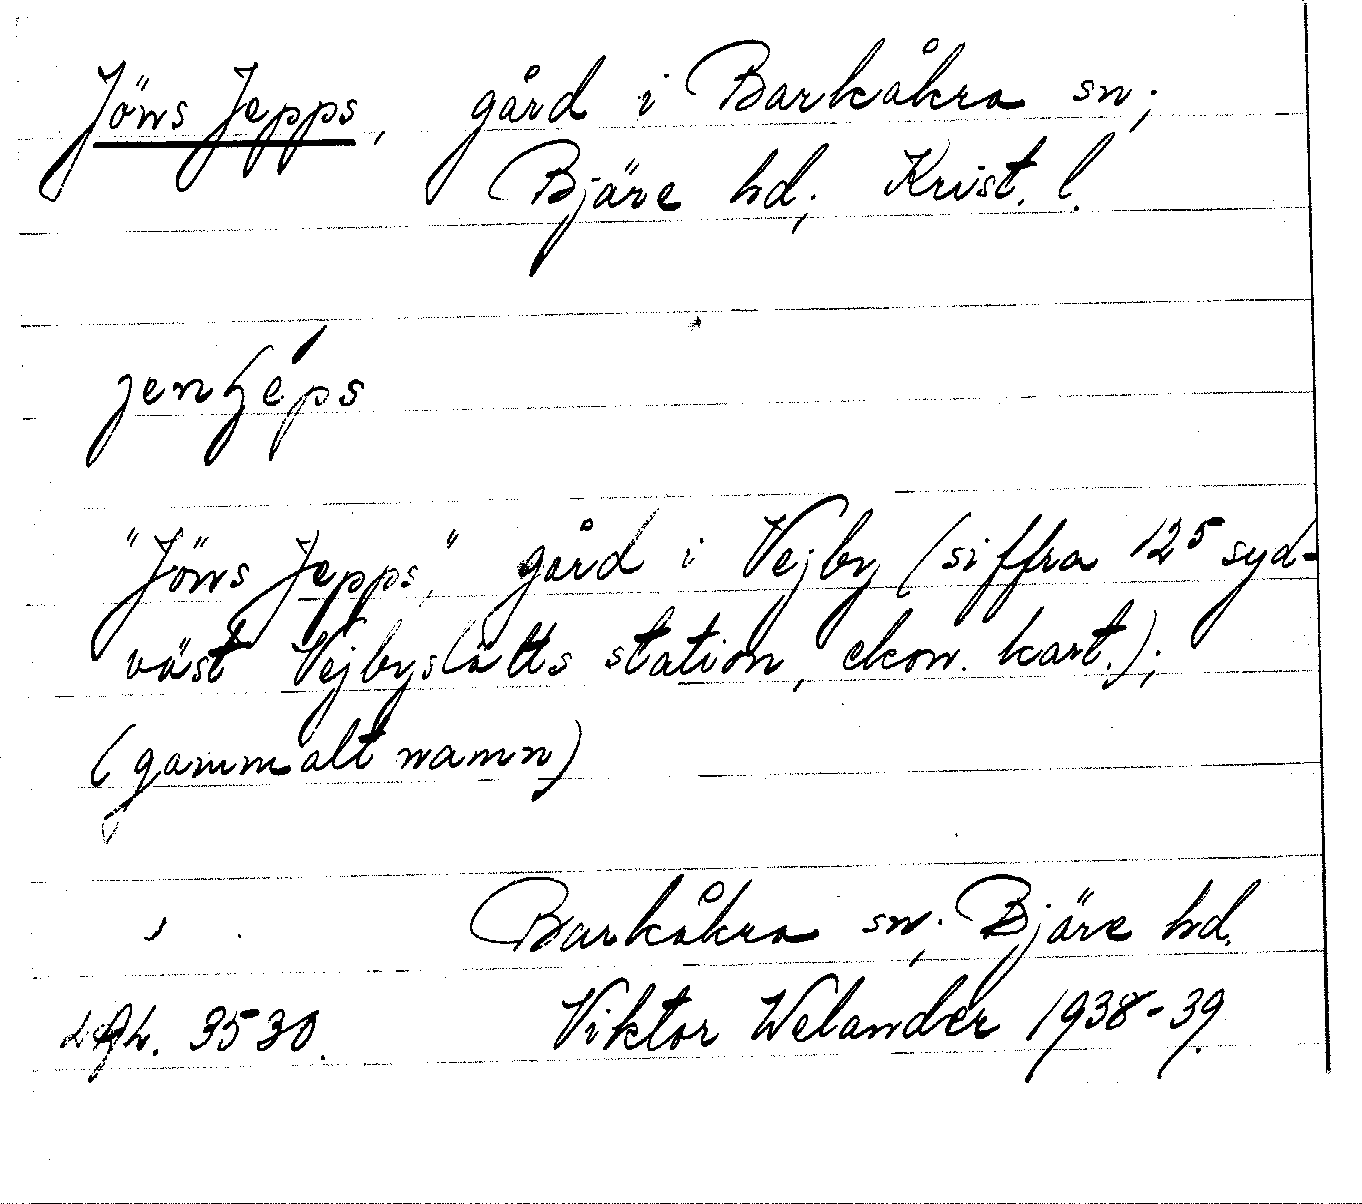 Jöns Jepps, gård i Barkåkra sn;
Bjäre hd; Krist. l.
"Jöns Jepps," gård i Vejby (siffra 12⁵ syd-
väst Vejbyslätts station, ekon. kart.);
(gammalt namn)
Barkåkra sn; Bjäre hd.
3530. Viktor Welander 1938-39.